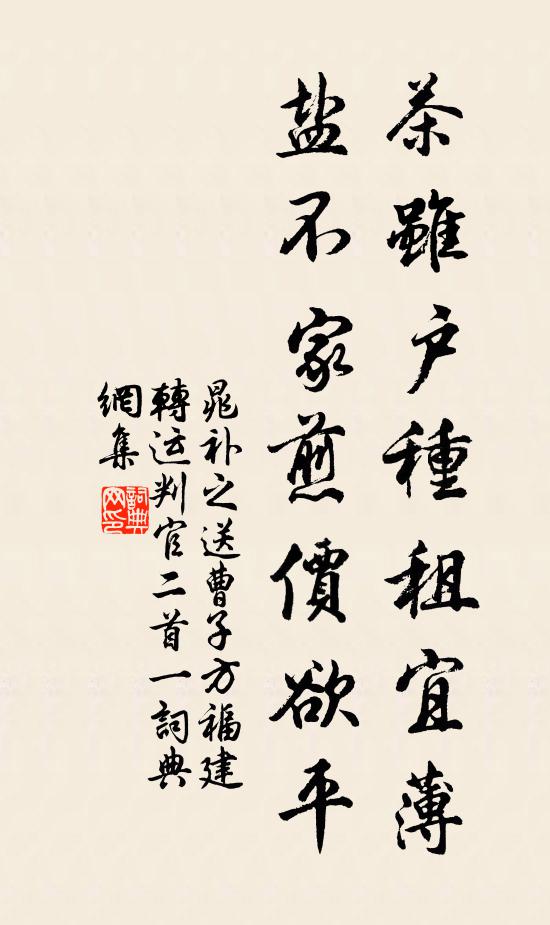 茶雖户種租宜薄
盐不家煎價欲平
晁补之送曹子方福建
轉运判官二首一詞典
網集
詞典
网印